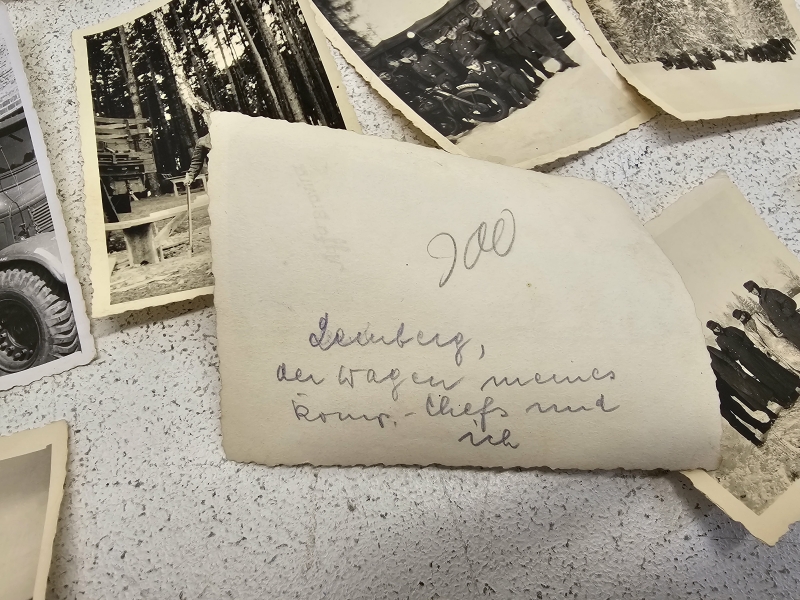 200
Lemberg,
der Wagen meines
Komp.-Chefs und
ich